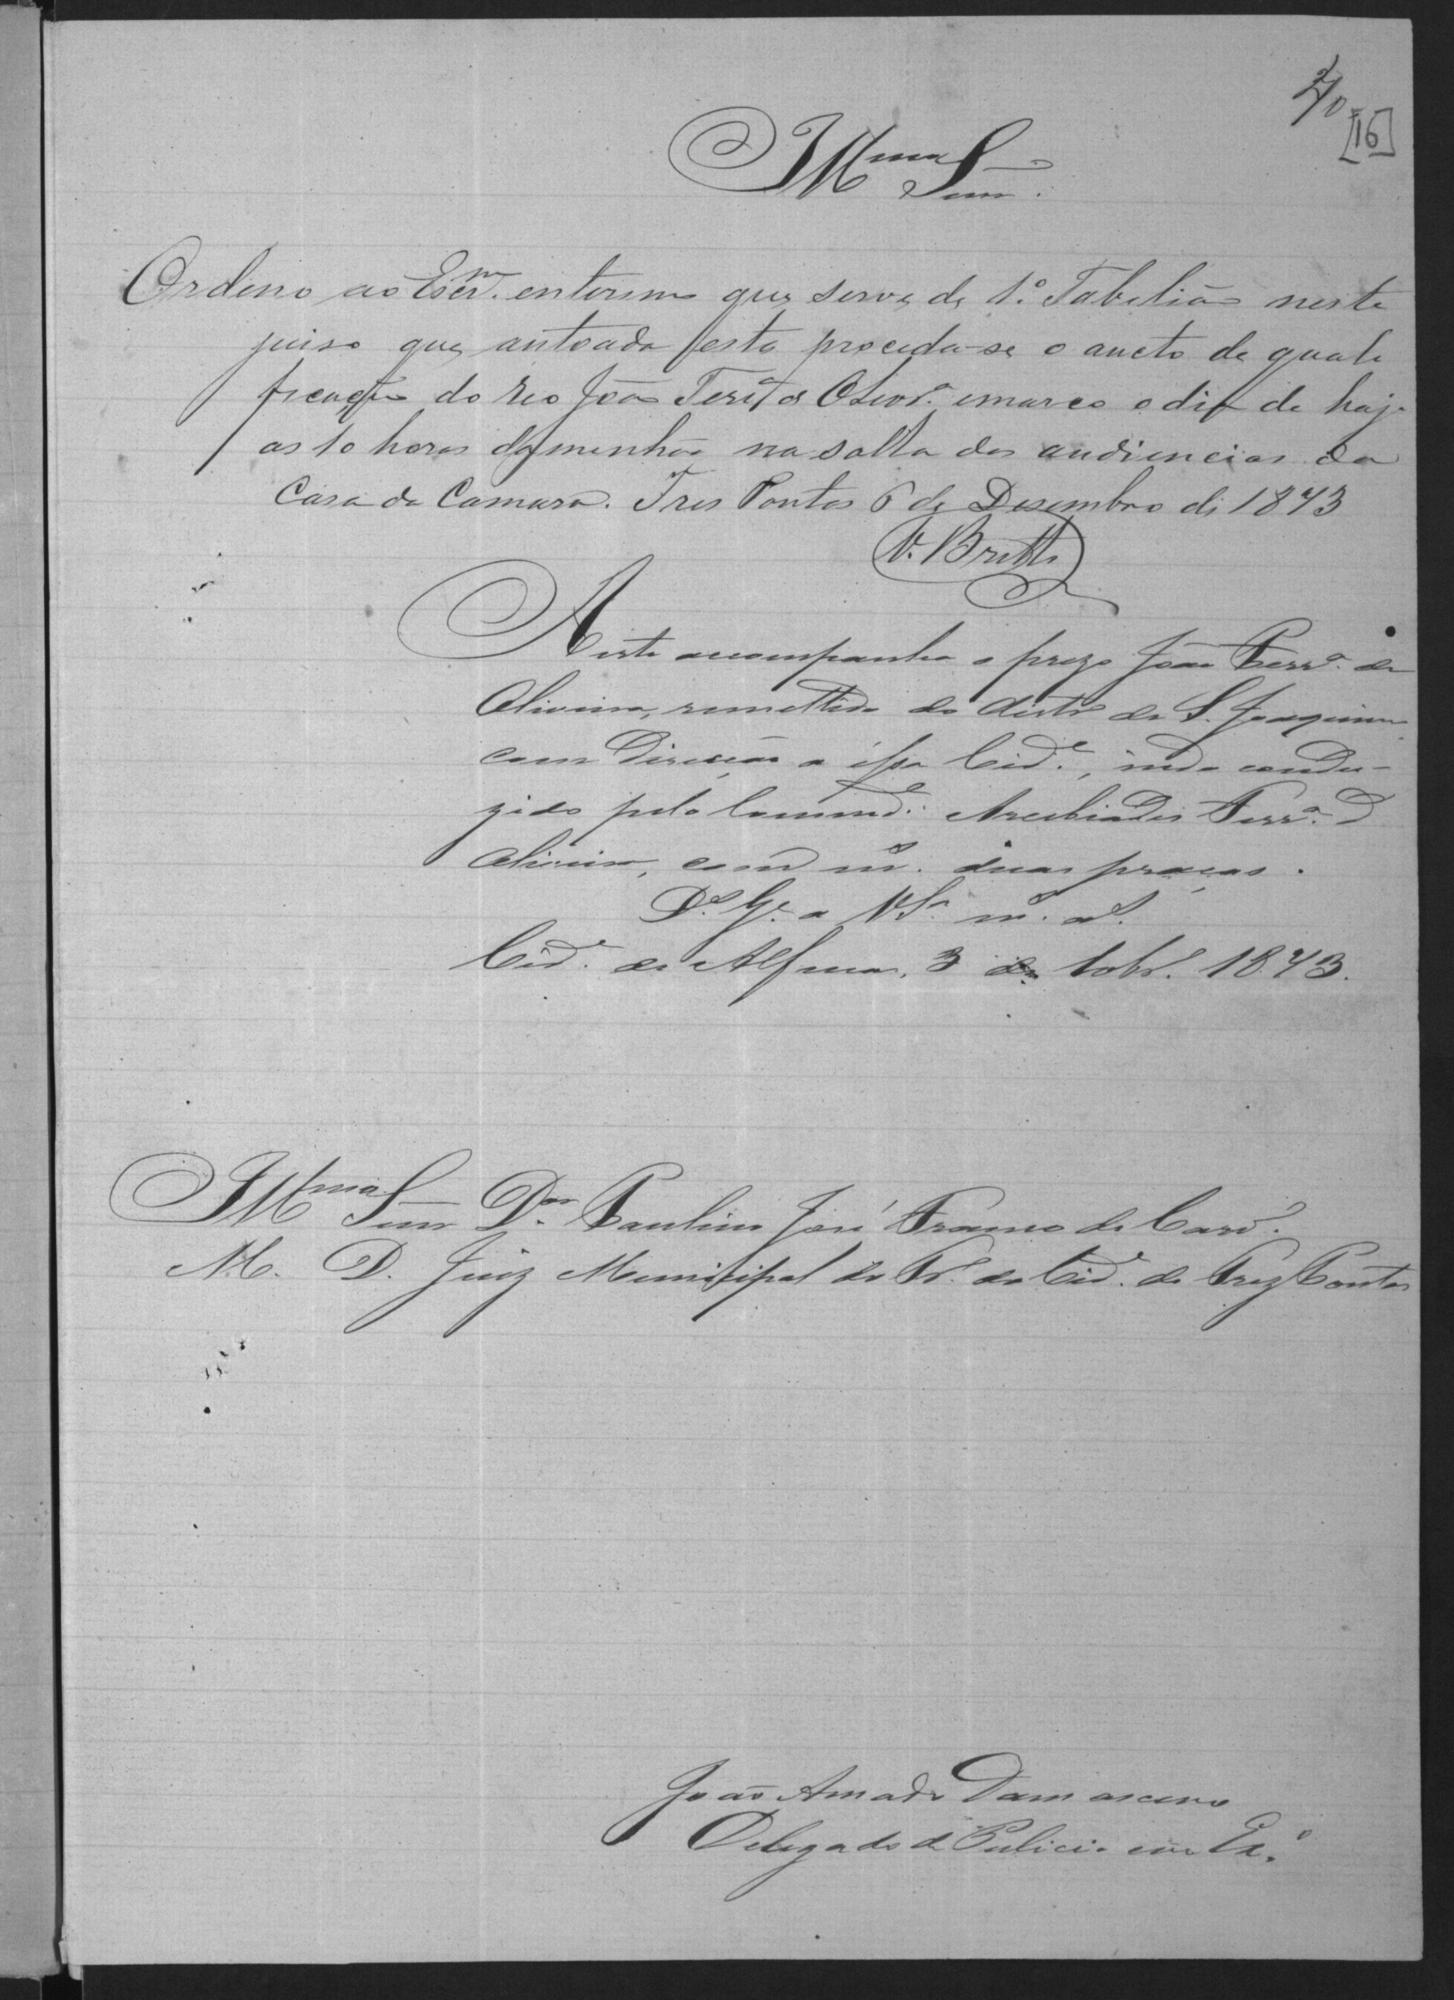 [16]
Illmo Snr.
Ordeno ao Escr.m enterino que serve de 1.º Tabelião neste
juiso que autoada esta proceda-se o aucto de quali
ficação do reo João Ferr.a de Olivr.a emarco o dia de hoje
as 10 horas damenhã na salla das audiencias da
Casa da Camara. Tres Pontas 6 de Desembro di 1873
V. Britto
A esta acompanha o prezo João Ferr.a de
Oliveira, remettido do distr.o de S. Joaquim
com Direcção a essa Cid.e, indo condu-
zido pelo Command.e Arcebiades Ferr.a d
Oliveira, com m.s duas praças.
D.s G.e a V.S.a m.s a.s
Cid.e de Alfenas, 3 de 10br.o 1873.
Illmo Snr Dor. Paulino José Franco de Carv.o
M. D. Juiz Municipal do Tr.o da Cid.e de Trez Pontas
João Amado Damasceno
Delegado de Policia em Ex.o